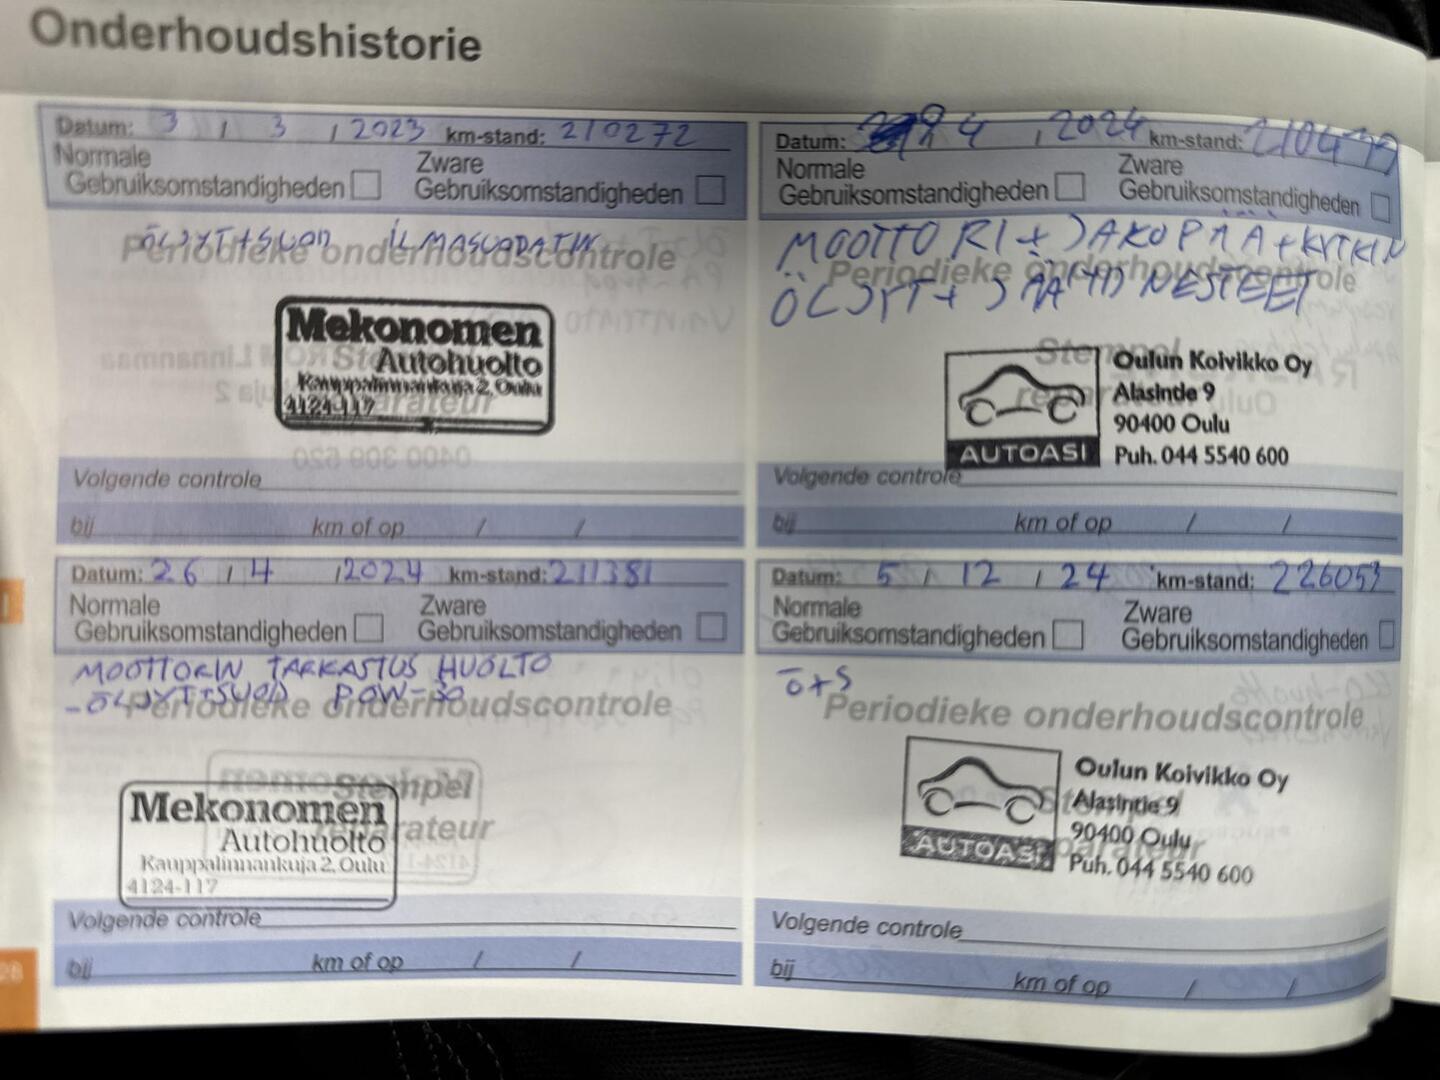 Onderhoudshistorie
Datum: 3 / 3 / 2023 km-stand: 210272
Normale Gebruiksomstandigheden
Zware Gebruiksomstandigheden
ÖLJYT+SUOD ILMASUODATIN
Periodieke onderhoudscontrole
Mekonomen
Autohuolto
Kauppalinnankuja 2, Oulu
4124-117
Volgende controle
bij km of op / /
Datum: 4 / 2024 km-stand:
Normale Gebruiksomstandigheden
Zware Gebruiksomstandigheden
MOOTTORI + JAKOPÄÄ + KYTKIN
Periodieke onderhoudscontrole
ÖLJYT + JÄÄHD NESTEET
Stempel
reparateur
AUTOASI
Oulun Koivikko Oy
Alasintie 9
90400 Oulu
Puh. 044 5540 600
Volgende controle
bij km of op / /
Datum: 26 / 4 / 2024 km-stand: 211381
Normale Gebruiksomstandigheden
Zware Gebruiksomstandigheden
MOOTTORIN TARKASTUS HUOLTO
-ÖLJYT+SUOD POW-30
Periodieke onderhoudscontrole
Stempel
reparateur
Mekonomen
Autohuolto
Kauppalinnankuja 2, Oulu
4124-117
Volgende controle
bij km of op / /
Datum: 5 / 12 / 24 km-stand: 226053
Normale Gebruiksomstandigheden
Zware Gebruiksomstandigheden
Ö+S
Periodieke onderhoudscontrole
Stempel
AUTOASI
Oulun Koivikko Oy
Alasintie 9
90400 Oulu
Puh. 044 5540 600
Volgende controle
bij km of op / /
28